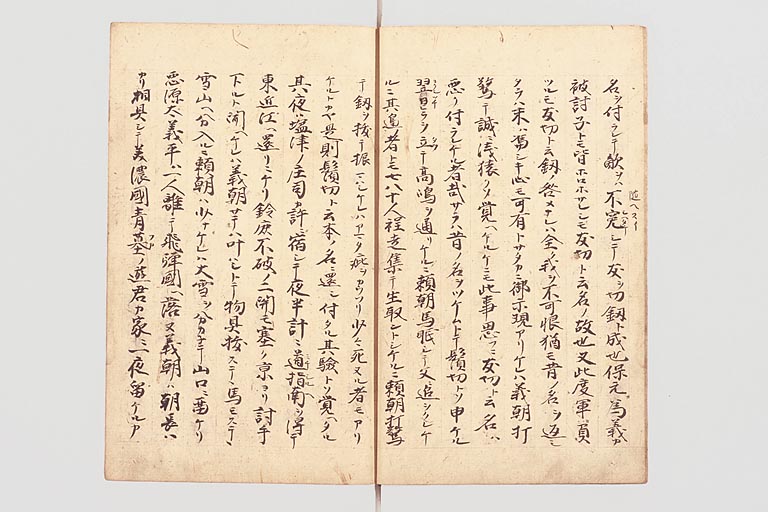 名ヲ付ラレテ敵ヲハ不随シテ友ヲ切釼ト成也保元ニ為義カ
被討子トモ皆ホロホサレシモ友切ト云名ノ故也又此度軍ニ負
ツルモ友切ト云釼ノ咎メナレハ全ク我ヲ不可恨猶モ昔ノ名ヲ返シ
タラハ末ハ馮シキ心モ可有トサタカニ御示現アリケレハ義朝打
驚テ誠ニ浅猿クソ覚ヘケルケニモ此事悪フニ友切ト云名ハ
悪ク付ラレケル者哉サラハ昔ノ名ヲツケムトテ鬚切トソ申ケル
翌日ヒラヲ立テ高嶋ヲ通リケルニ頼朝馬眠シテ父ニ追ヲクレケ
ルニ其邉者トモ七八十人程走集テ生取ントシケルニ頼朝打驚
テ釼ヲ抜テ振マヒケレハアマタ疵ヲカウフリ少々ハ死ヌル者モアリ
ケルトカヤ是則鬚切ト云本ノ名ニ還シ付タル其験トソ覚ヘタル
其夜ハ塩津ノ庄司カ許ニ宿シテ夜半計ニ道指南ヲ得テ
東近江ヘ還リニケリ鈴鹿不破ノ二関モ塞ク京ヨリ討手
下ルト聞ヘケレハ義朝サテハ叶ハシトテ物具抜ステ馬モステ
雪山ヘ分入ルニ頼朝ハ少ナケレハ大雪ヲ分カネテ山口ニ留ケリ
悪源太義平ハ一人離テ飛騨國ヘ落ヌ義朝ハ朝長ハ
カリ相具シテ美濃國青墓ノ遊君カ家ニ一夜留ケルカ